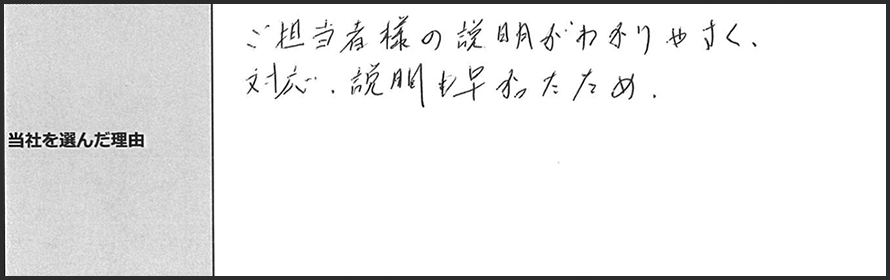 当社を選んだ理由
ご担当者様の説明がわかりやすく、
対応、説明も早かったため、